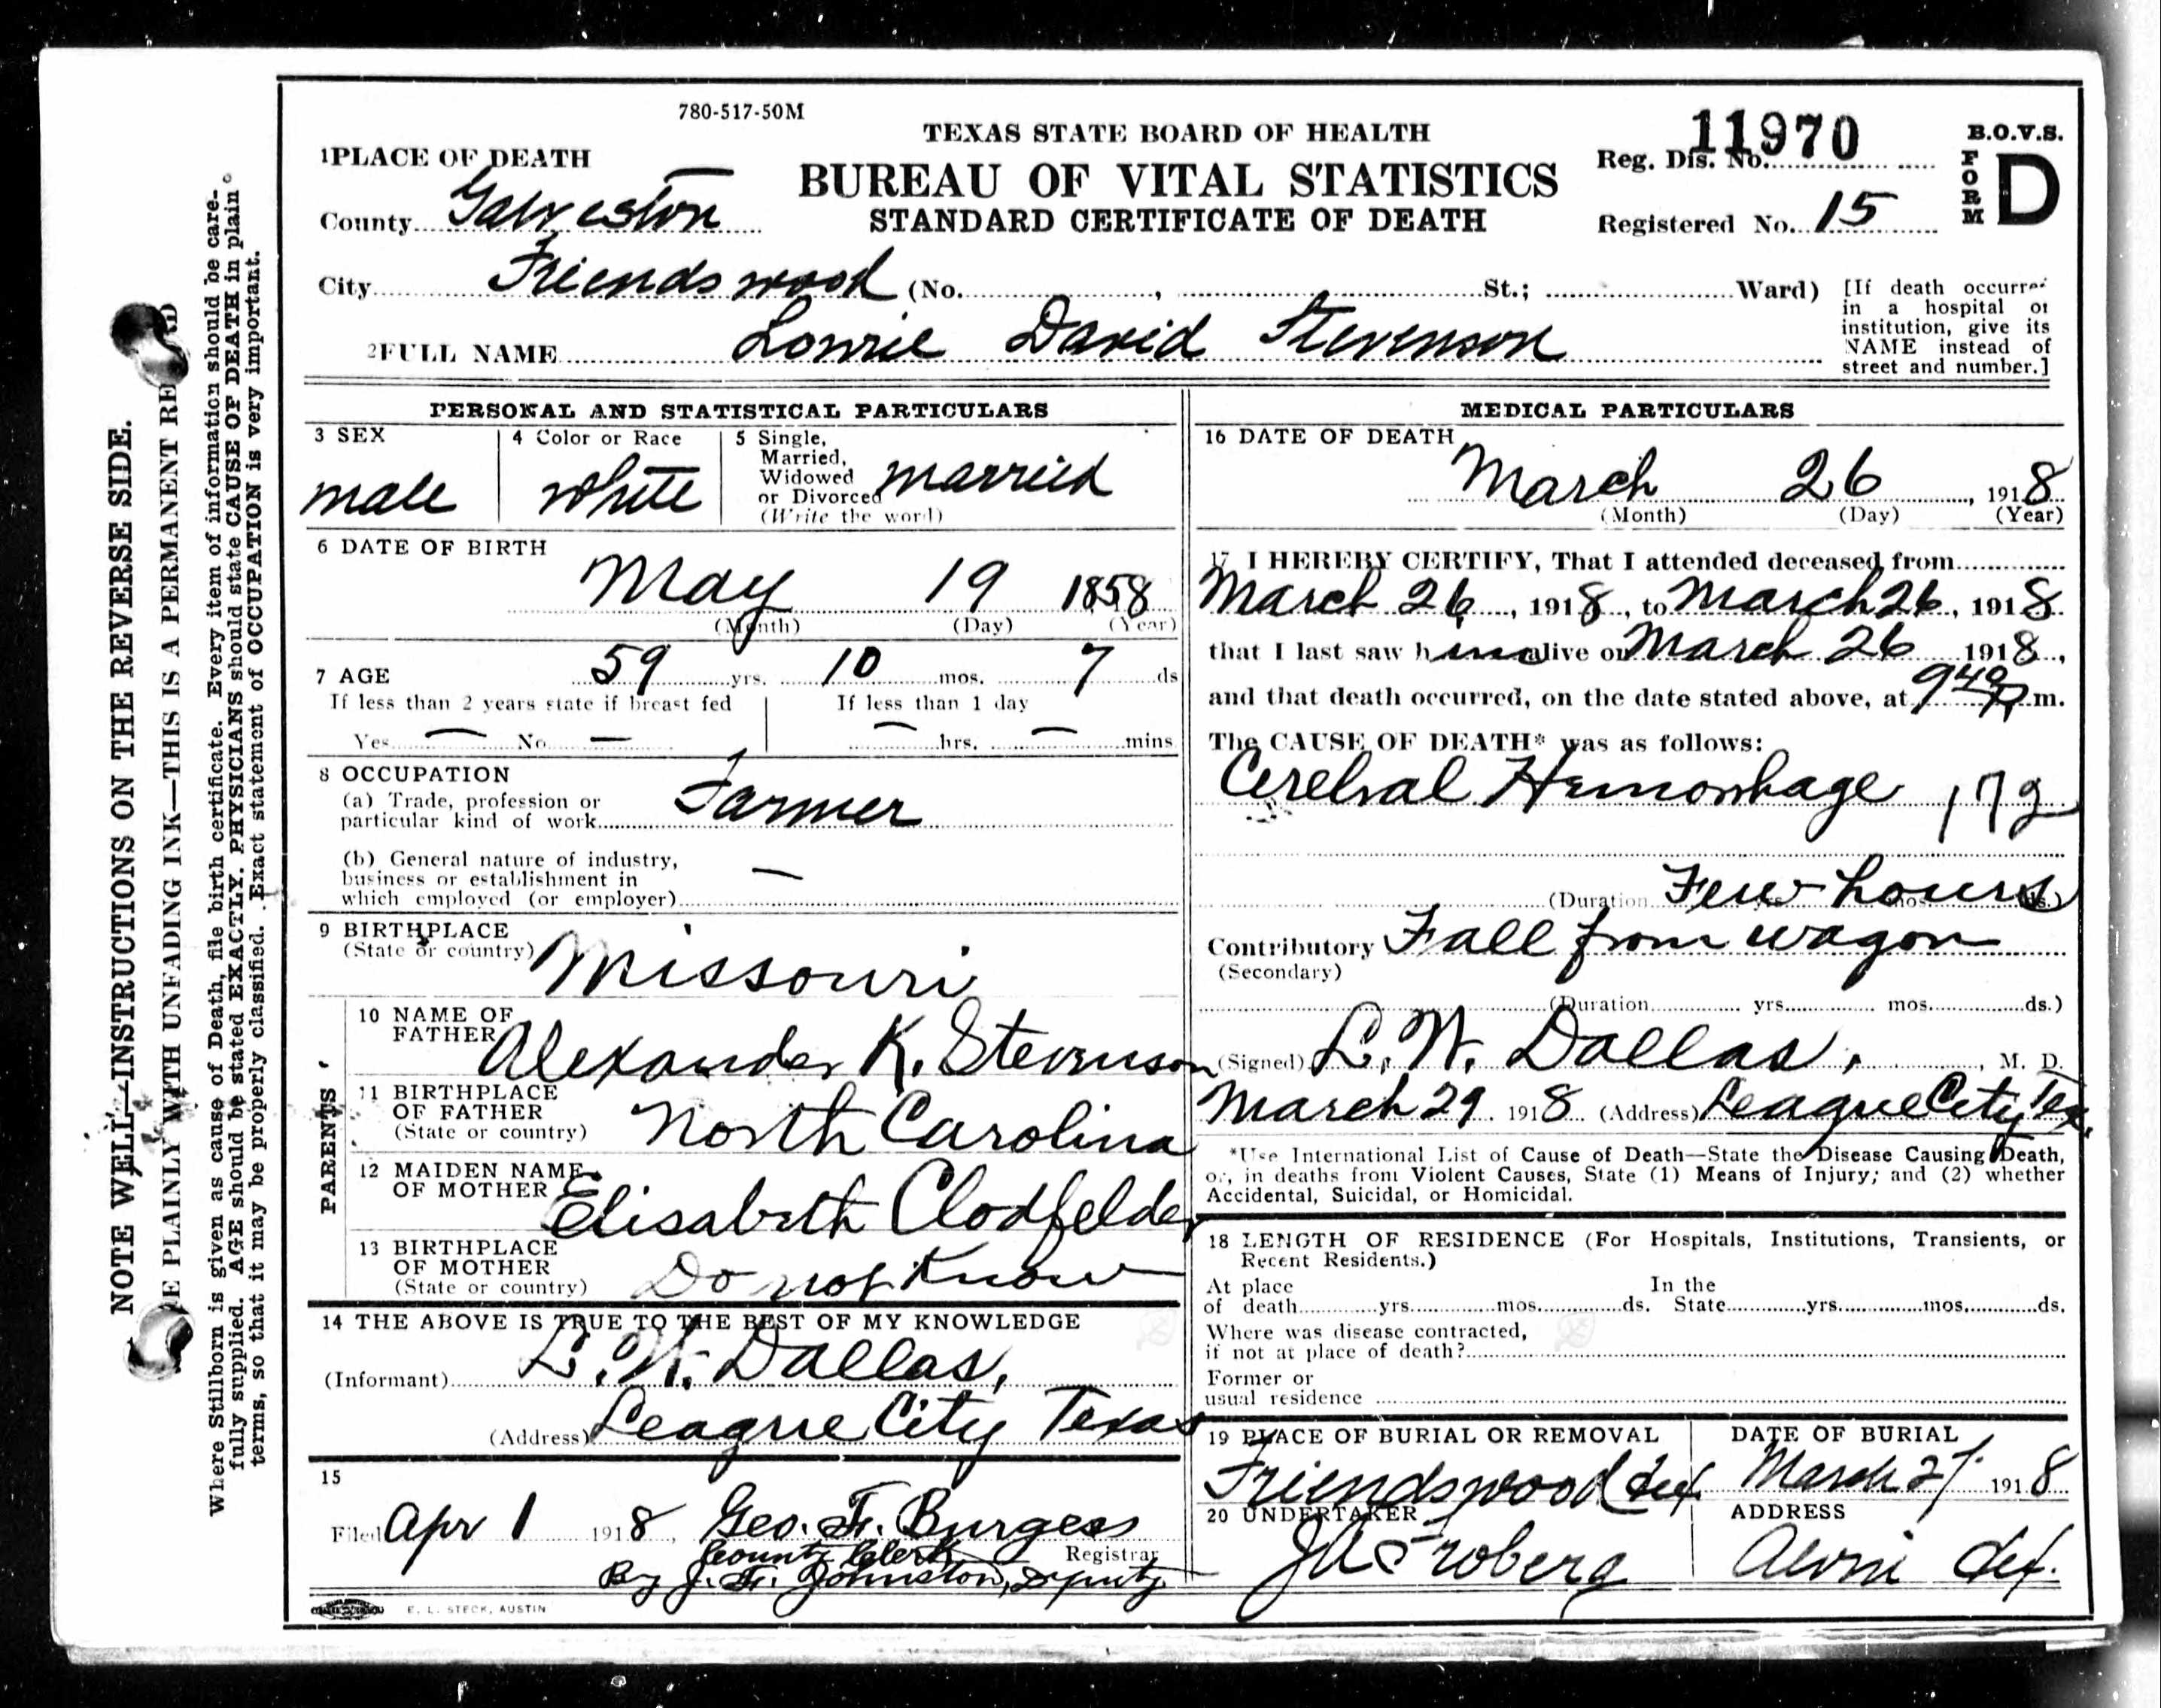 780-517-50M
TEXAS STATE BOARD OF HEALTH
BUREAU OF VITAL STATISTICS
STANDARD CERTIFICATE OF DEATH
Reg. Dis. No. 11970
Registered No. 15
B.O.V.S.
FORM D
1 PLACE OF DEATH
County Galveston
City Friendswood (No. , St.; Ward)
[If death occurred
in a hospital or
institution, give its
NAME instead of
street and number.]
2 FULL NAME Lowrie David Stevenson
PERSONAL AND STATISTICAL PARTICULARS
3 SEX
male
4 Color or Race
White
5 Single,
Married,
Widowed
or Divorced married
(Write the word)
6 DATE OF BIRTH
May 19 1858
(Month) (Day) (Year)
7 AGE 59 yrs. 10 mos. 7 ds
If less than 2 years state if breast fed
Yes — No —
If less than 1 day
— hrs. — mins
8 OCCUPATION
(a) Trade, profession or
particular kind of work Farmer
(b) General nature of industry,
business or establishment in
which employed (or employer) —
9 BIRTHPLACE
(State or country) Missouri
PARENTS
10 NAME OF
FATHER Alexander K. Stevenson
11 BIRTHPLACE
OF FATHER
(State or country) North Carolina
12 MAIDEN NAME
OF MOTHER Elisabeth Clodfelder
13 BIRTHPLACE
OF MOTHER
(State or country) Do not Know
14 THE ABOVE IS TRUE TO THE BEST OF MY KNOWLEDGE
(Informant) L. W. Dallas,
(Address) League City Texas
15
Filed Apr 1 1918, Geo. F. Burgess
County Clerk Registrar
By J. F. Johnston, Deputy
E. L. STECK, AUSTIN
MEDICAL PARTICULARS
16 DATE OF DEATH
March 26, 1918
(Month) (Day) (Year)
17 I HEREBY CERTIFY, That I attended deceased from
March 26, 1918, to March 26, 1918
that I last saw him alive on March 26 1918,
and that death occurred, on the date stated above, at 9 40 P. m.
The CAUSE OF DEATH* was as follows:
Cerebral Hemorrhage 172
(Duration Few hours yrs. mos. ds.)
Contributory Fall from wagon
(Secondary)
(Duration yrs. mos. ds.)
(Signed) L. W. Dallas, M. D.
March 29 1918 (Address) League City Tex.
*Use International List of Cause of Death—State the Disease Causing Death,
or, in deaths from Violent Causes, State (1) Means of Injury; and (2) whether
Accidental, Suicidal, or Homicidal.
18 LENGTH OF RESIDENCE (For Hospitals, Institutions, Transients, or
Recent Residents.)
At place In the
of death yrs. mos. ds. State yrs. mos. ds.
Where was disease contracted,
if not at place of death?
Former or
usual residence
19 PLACE OF BURIAL OR REMOVAL
Friendswood Tex
DATE OF BURIAL
March 27 1918
20 UNDERTAKER
Froberg
ADDRESS
Alvin Tex.
NOTE WELL—INSTRUCTIONS ON THE REVERSE SIDE.
PLAINLY WITH UNFADING INK—THIS IS A PERMANENT
Where Stillborn is given as cause of Death, file birth certificate. Every item of information should be care-
fully supplied. AGE should be stated EXACTLY. PHYSICIANS should state CAUSE OF DEATH in plain
terms, so that it may be properly classified. Exact statement of OCCUPATION is very important.